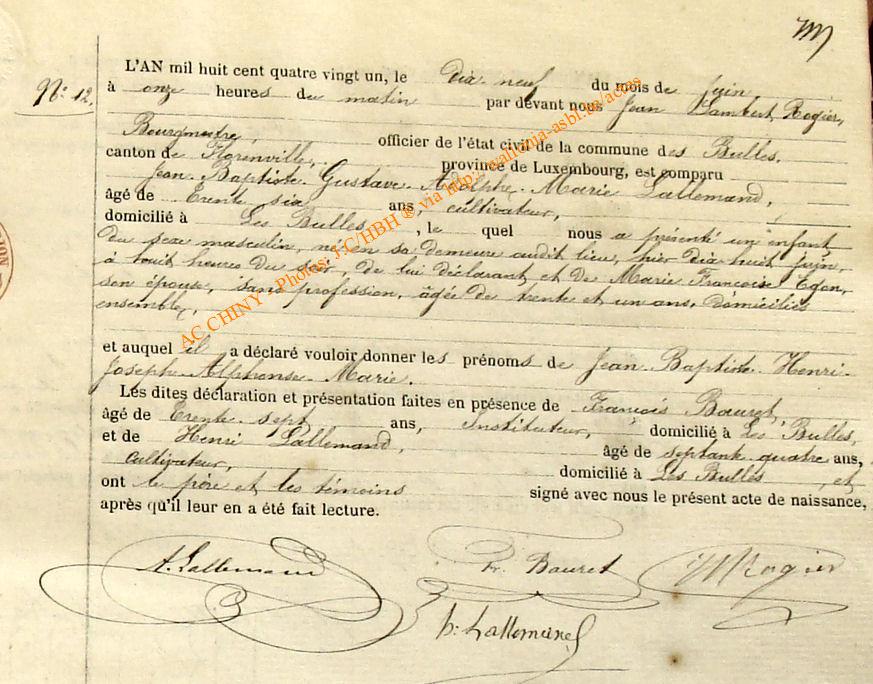 No: 12.
L'AN mil huit cent quatre vingt un, le Dix-neuf du mois de Juin,
à onze heures du matin par devant nous Jean Lambert Rogier,
Bourgmestre officier de l'état civil de la commune des Bulles,
canton de Florenville, province de Luxembourg, est comparu
Jean-Baptiste-Gustave-Adolphe-Marie Lallemand,
âgé de Trente six ans, cultivateur,
domicilié à Les Bulles, le quel nous a présenté un enfant
du sexe masculin, né en sa demeure audit lieu, hier dix huit juin,
à huit heures du soir, de lui déclarant et de Marie Françoise Egon,
son épouse, sans profession, âgée de trente et un ans, domiciliés
ensemble,
et auquel il a déclaré vouloir donner les prénoms de Jean-Baptiste-Henri-
Joseph-Alphonse-Marie.
Les dites déclaration et présentation faites en présence de François Bauret,
âgé de Trente-sept ans, Instituteur, domicilié à Les Bulles,
et de Henri Lallemand, âgé de septante quatre ans,
cultivateur, domicilié à Les Bulles, et
ont le père et les témoins signé avec nous le présent acte de naissance,
après qu'il leur en a été fait lecture.
A. Lallemand Fr. Bauret Rogier
h: Lallemand
AC CHINY - Photos: J.C/HBH ® via http://wallonia-asbl.be/actes